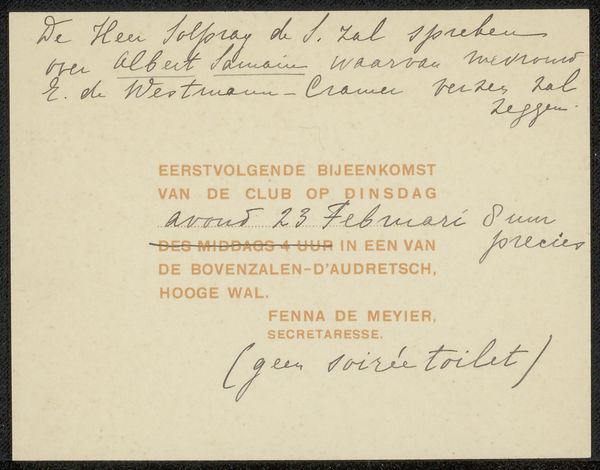 De Heer Solpray de S. zal spreken
over Albert Samain waarvan mevrouw
E. de Westmann-Cramer verzen zal
zeggen.
EERSTVOLGENDE BIJEENKOMST
VAN DE CLUB OP DINSDAG
avond 23 Februari 8 uur
precies
DES MIDDAGS 4 UUR IN EEN VAN
DE BOVENZALEN-D'AUDRETSCH,
HOOGE WAL.
FENNA DE MEYIER,
SECRETARESSE.
(geen soirée toilet)